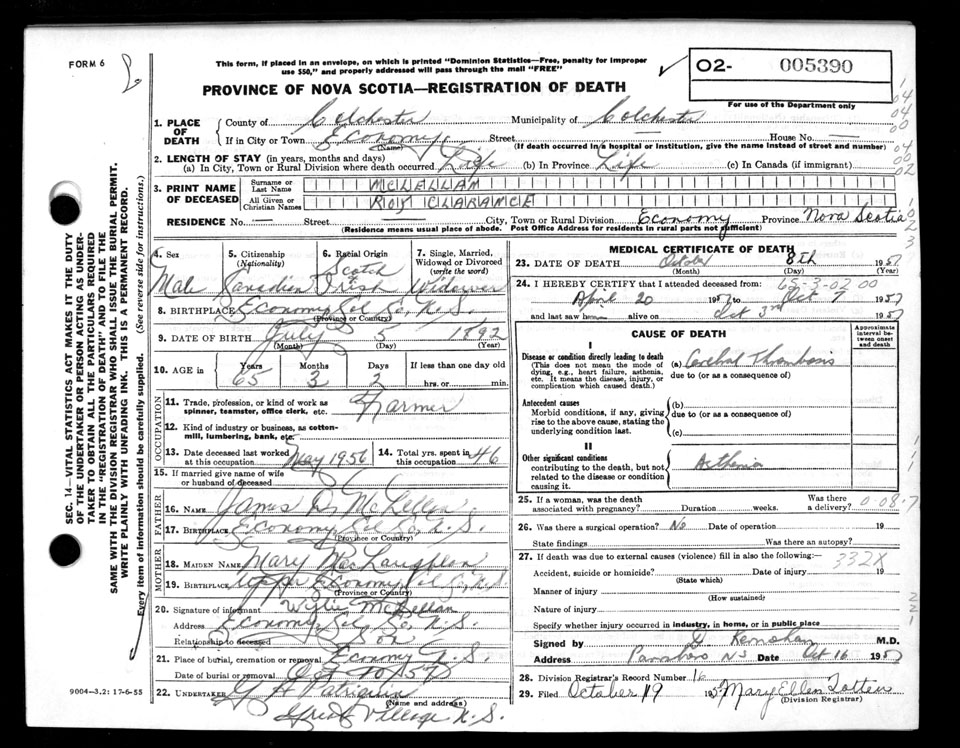 FORM 6
This form, if placed in an envelope, on which is printed "Dominion Statistics—Free, penalty for improper
use $50," and properly addressed will pass through the mail "FREE"
O2- 005390
For use of the Department only
PROVINCE OF NOVA SCOTIA—REGISTRATION OF DEATH
1. PLACE OF DEATH
County of Colchester Municipality of Colchester
If in City or Town Economy Street House No. —
(Name) (If death occurred in a hospital or institution, give the name instead of street and number)
2. LENGTH OF STAY (in years, months and days)
(a) In City, Town or Rural Division where death occurred Life (b) In Province Life (c) In Canada (if immigrant)
3. PRINT NAME OF DECEASED
Surname or Last Name MCLELLAN
All Given or Christian Names ROY CLARANCE
RESIDENCE No. — Street City, Town or Rural Division Economy Province Nova Scotia
(Residence means usual place of abode. Post Office Address for residents in rural parts not sufficient)
4. Sex Male
5. Citizenship (Nationality) Canadian
6. Racial Origin Scotch Irish
7. Single, Married, Widowed or Divorced (write the word) Widower
8. BIRTHPLACE Economy Col Co, N.S.
(Province or Country)
9. DATE OF BIRTH July 5 1892
(Month) (Day) (Year)
10. AGE in Years 65 Months 3 Days 3 If less than one day old hrs. or min.
OCCUPATION
11. Trade, profession, or kind of work as spinner, teamster, office clerk, etc. Farmer
12. Kind of industry or business, as cotton-mill, lumbering, bank, etc.
13. Date deceased last worked at this occupation May 1956
14. Total yrs. spent in this occupation 46
15. If married give name of wife or husband of deceased
FATHER
16. Name James D. McLellan
17. Birthplace Economy Col Co, N.S.
(Province or Country)
MOTHER
18. MAIDEN NAME Mary MacLaughlin
19. Birthplace Upper Economy, Col Co, N.S.
(Province or Country)
20. Signature of informant McLellan
Address Economy, Col, Co, N.S.
Relationship to deceased Son
21. Place of burial, cremation or removal Economy N.S.
Date of burial or removal Oct 10 57
22. UNDERTAKER G H Patriquin
(Name and address)
Great Village N.S.
MEDICAL CERTIFICATE OF DEATH
23. DATE OF DEATH October 8th 1957
(Month) (Day) (Year)
24. I HEREBY CERTIFY that I attended deceased from: 65-3-02 00
April 20 1957 to Oct 7 1957
and last saw h alive on Oct 3rd 1957
CAUSE OF DEATH
Approximate interval between onset and death
I
Disease or condition directly leading to death
(This does not mean the mode of dying, e.g., heart failure, asthenia, etc. It means the disease, injury, or complication which caused death.)
(a) Cerebral Thrombosis
due to (or as a consequence of)
Antecedent causes
Morbid conditions, if any, giving rise to the above cause, stating the underlying condition last.
(b)
due to (or as a consequence of)
(c)
II
Other significant conditions
contributing to the death, but not related to the disease or condition causing it.
Asthenia
25. If a woman, was the death associated with pregnancy? Duration weeks. Was there a delivery? 0-08-7
26. Was there a surgical operation? No Date of operation 19
State findings Was there an autopsy?
27. If death was due to external causes (violence) fill in also the following:— 332X
Accident, suicide or homicide? Date of injury 19
(State which)
Manner of injury
(How sustained)
Nature of injury
Specify whether injury occurred in industry, in home, or in public place
Signed by Kernohan M.D.
Address Parrsboro NS Date Oct 16 1957
28. Division Registrar's Record Number 16
29. Filed October 19 1957 Mary Ellen Totten
(Division Registrar)
9004—3.2: 17-6-55
SEC. 14—VITAL STATISTICS ACT MAKES IT THE DUTY
OF THE UNDERTAKER OR PERSON ACTING AS UNDER-
TAKER TO OBTAIN ALL THE PARTICULARS REQUIRED
IN THE "REGISTRATION OF DEATH" AND TO FILE THE
SAME WITH THE DIVISION REGISTRAR WHO SHALL ISSUE THE BURIAL PERMIT.
WRITE PLAINLY WITH UNFADING INK. THIS IS A PERMANENT RECORD.
Every item of information should be carefully supplied. (See reverse side for instructions.)